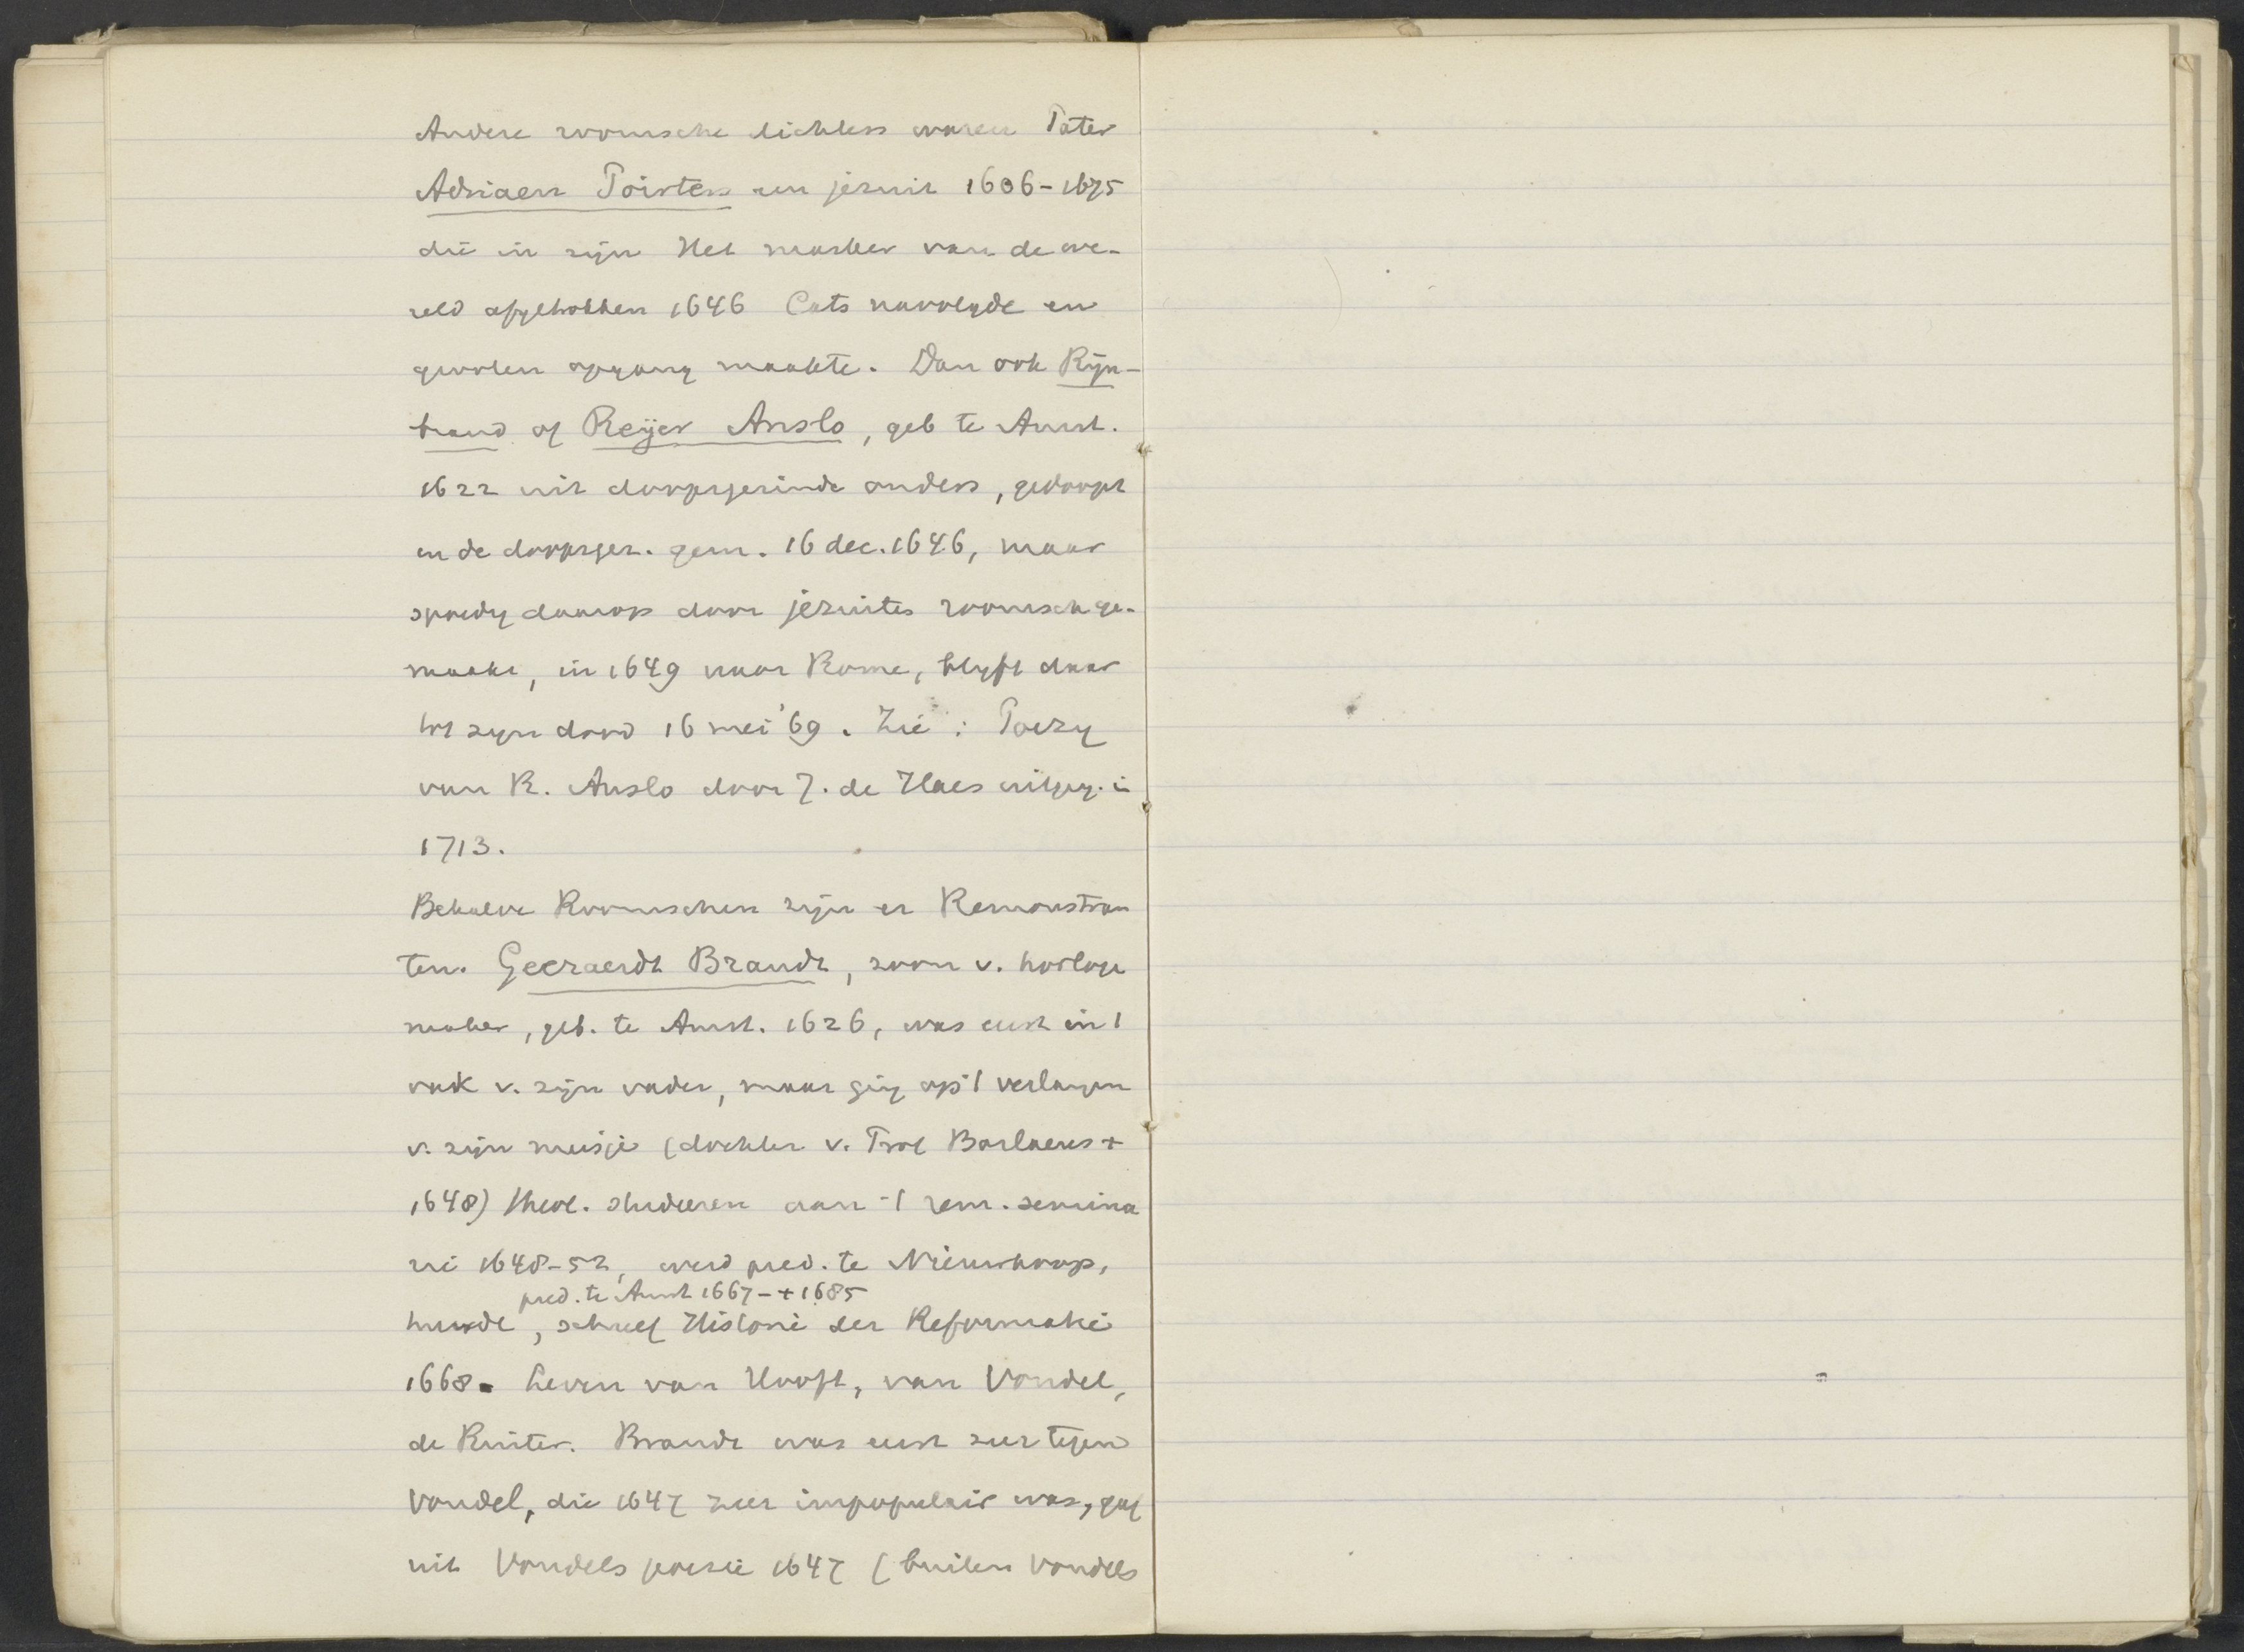 Andere roomsche dichters waren Pater
Adriaen Poirters een jezuit 1606-1675
die in zijn Het masker van de we-
reld afgetrokken 1646 Cats navolgde en
grooten opgang maakte. Dan ook Rijn-
brand of Reijer Anslo, geb te Amst.
1622 uit doopsgezinde ouders, gedoopt
in de doopsgez. gem. 16 dec. 1646, maar
spoedig daarop door jezuites roomsch ge-
maakt, in 1649 naar Rome, blijft daar
tot zijn dood 16 mei '69. Zie: Poezy
van R. Anslo door J. de Haes uitgeg. in
1713.
Behalve Roomschen zijn er Remonstran
ten. Geeraerdt Brandt, zoon v. horloge
maker, geb. te Amst. 1626, was eerst in 't
vak v. zijn vader, maar ging op 't verlangen
v. zijn meisje (dochter v. Prof Barlaeus +
1648) theol. studeeren aan 't rem. semina
rie 1648-52, werd pred. te Nieuwkoop,
pred. te Amst 1667-+1685
huwde, schreef Historie der Reformatie
1668. Leven van Hooft, van Vondel,
de Ruiter. Brandt was eerst zeer tegen
Vondel, die 1647 zeer impopulair was, gaf
uit Vondels poezie 1647 (buiten Vondels